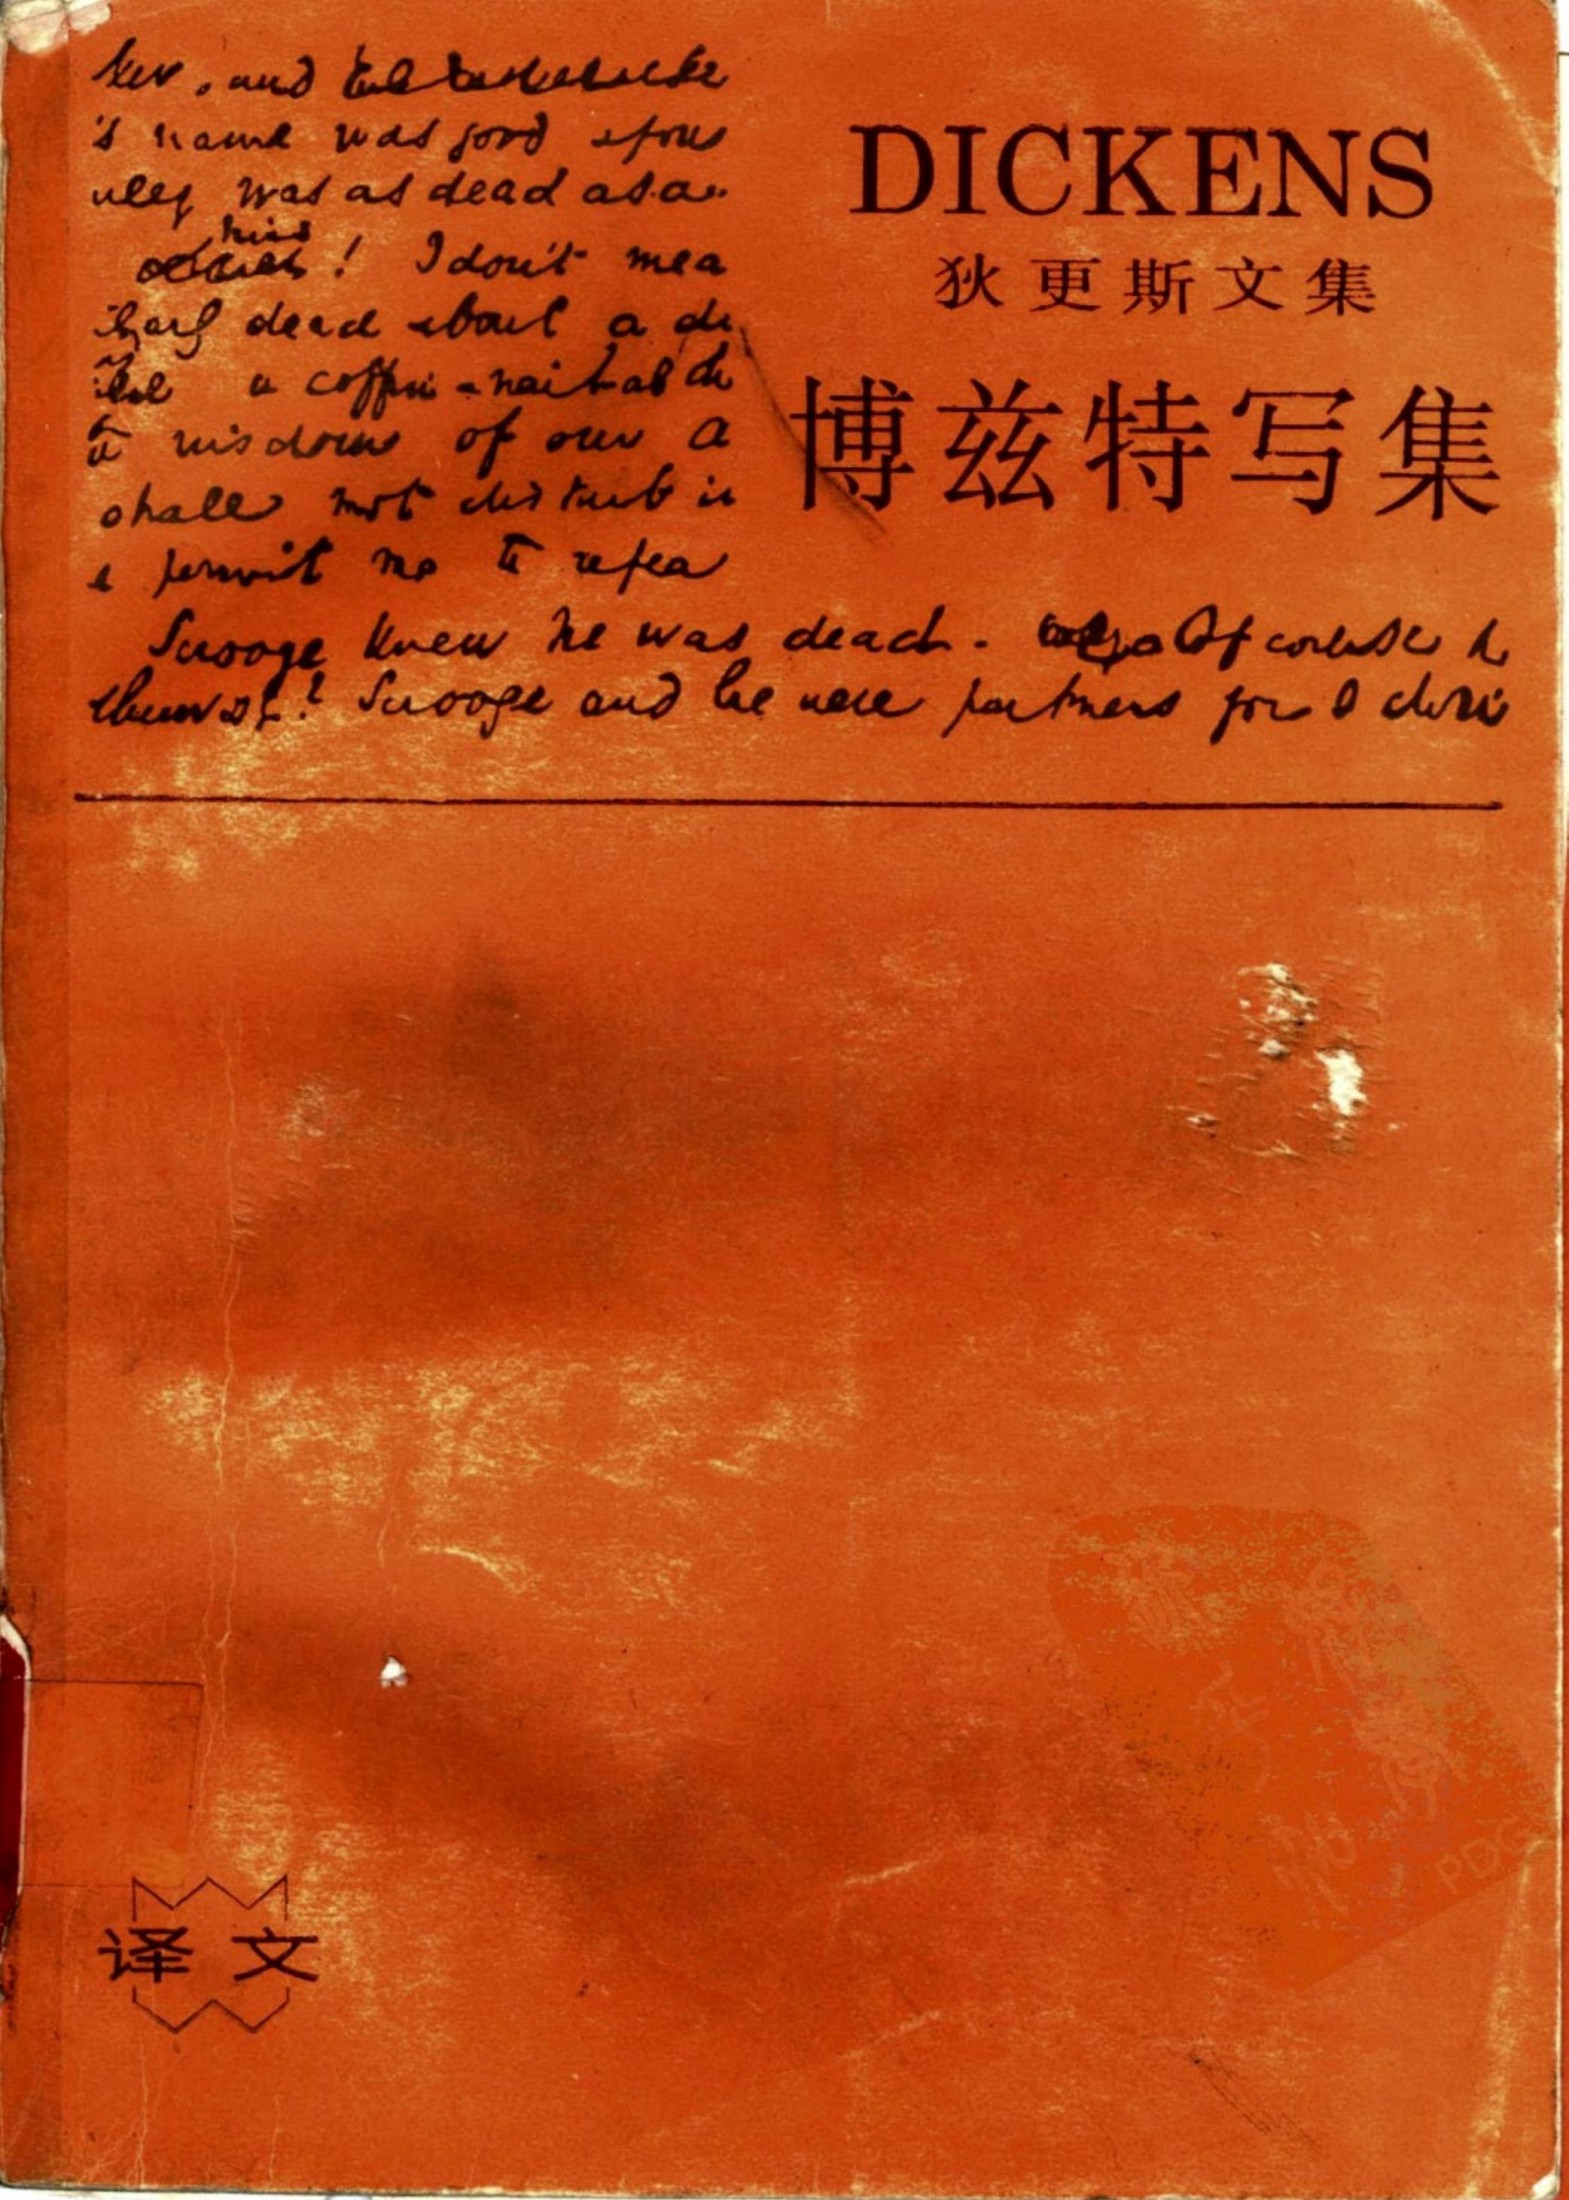 's name was good
was as dead as a
! I don't mea
dead about a d
a coffin-nail as
wisdom of our A
shall not disturb i
e permit me to repea
Scrooge knew he was dead. Of course h
Scrooge and he were partners for I don
DICKENS
狄更斯文集
博兹特写集
译文
PDG